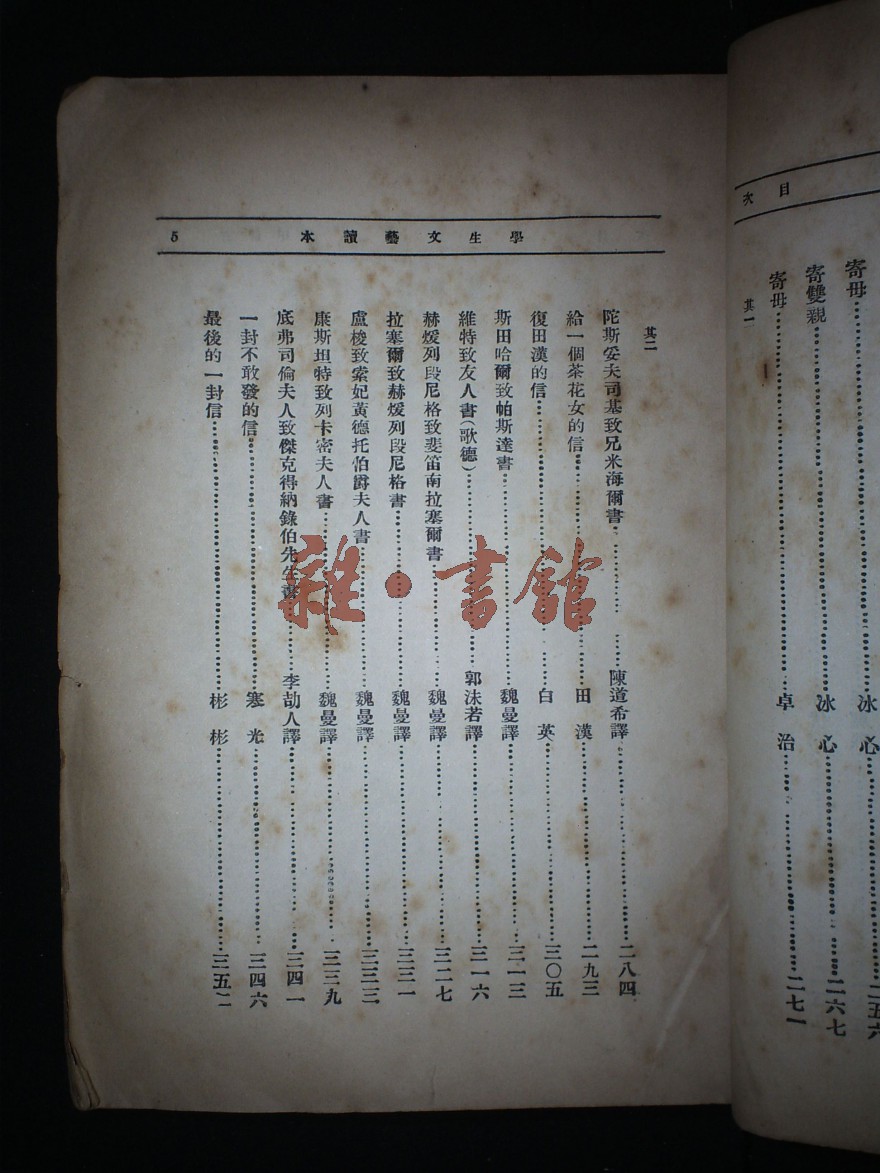 目次
寄母……冰心……二五六
寄雙親……冰心……二六七
寄母……卓治……二七一
其一
學生文藝讀本 5
其二
陀斯妥夫司基致兄米海爾書……陳道希譯……二八四
給一個茶花女的信……田漢……二九三
復田漢的信……白英……三〇五
斯田哈爾致帕斯達書……魏曼譯……三一三
維特致友人書(歌德)……郭沫若譯……三一六
赫煖列段尼格致斐笛南拉塞爾書……魏曼譯……三二七
拉塞爾致赫煖列段尼格書……魏曼譯……三三一
盧梭致索妃黃德托伯爵夫人書……魏曼譯……三三三
康斯坦特致列卡密夫人書……魏曼譯……三三九
底弗司倫夫人致傑克得納錄伯先生書……李劼人譯……三四一
一封不敢發的信……寒光……三四六
最後的一封信……彬彬……三五二
雜·書館